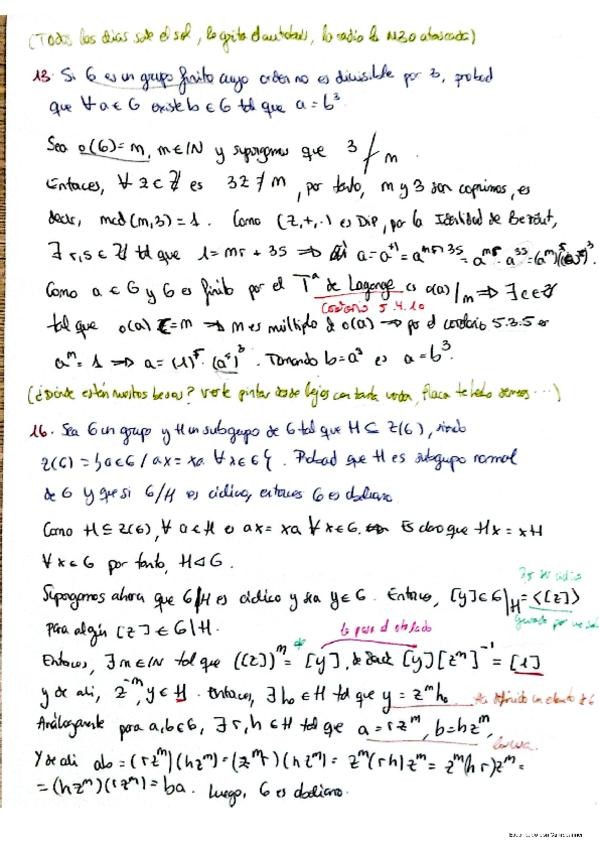 (Todos los días sale el sol, la gripa el autobús, la radio la M30 atascada)
13. Si G es un grupo finito cuyo orden no es divisible por 3, probad
que ∀a ∈ G existe b ∈ G tal que a = b³.
Sea o(G)=m, m∈ℕ y supongamos que 3 ∤ m.
Entonces, ∀ z ∈ ℤ es 3z ≠ m, por tanto, m y 3 son coprimos, es
decir, mcd(m,3)=1. Como (ℤ,+,·) es DIP, por la Identidad de Bezout,
∃ r,s ∈ ℤ tal que 1=mr + 3s ⟹ a = a⁺¹ = a^{mr+3s} = a^{mr} · a^{3s} =
Como a ∈ G y G es finito por el Tª de Lagrange es o(a)/m ⟹ ∃
Corolario 5.4.10
tal que o(a) = m ⟹ m es múltiplo de o(a) ⟹ por el corolario 5.3.5 es
a^m = 1 ⟹ a = (1)^r · (a^s)^3. Tomando b=a^s es a=b³.
(¿Dónde están nuestros besos? verte pintar desde lejos con tanta
16. Sea G un grupo y H un subgrupo de G tal que H ⊆ Z(G), siendo
Z(G) = {a∈G / ax = xa ∀x∈G}. Probad que H es subgrupo normal
de G y que si G/H es cíclico, entonces G es abeliano.
Como H ⊆ Z(G), ∀ a∈H es ax = xa ∀x∈G. Es claro que Hx = xH
∀x∈G por tanto, H⊲G.
Supongamos ahora que G/H es cíclico y sea y∈G. Entonces, [y]∈G/H = <[z]>
por ser cíclico
generado por
Para algún [z] ∈ G/H.
lo paso al otro lado
Entonces, ∃ m∈ℕ tal que ([z])^m = [y], de donde [y][z^m]^{-1} = [1]
y de ahí, z^{-m}y ∈ H. Entonces, ∃ h₀∈H tal que y = z^m h₀.
Análogamente para a,b∈G, ∃ r,h∈H tal que a = rz^m, b = hz^m,
Y de ahí ab = (rz^m)(hz^m) = (z^m r)(hz^m) = z^m(rh)z^m = z^m(hr)z^m =
= (hz^m)(rz^m) = ba. Luego, G es abeliano.